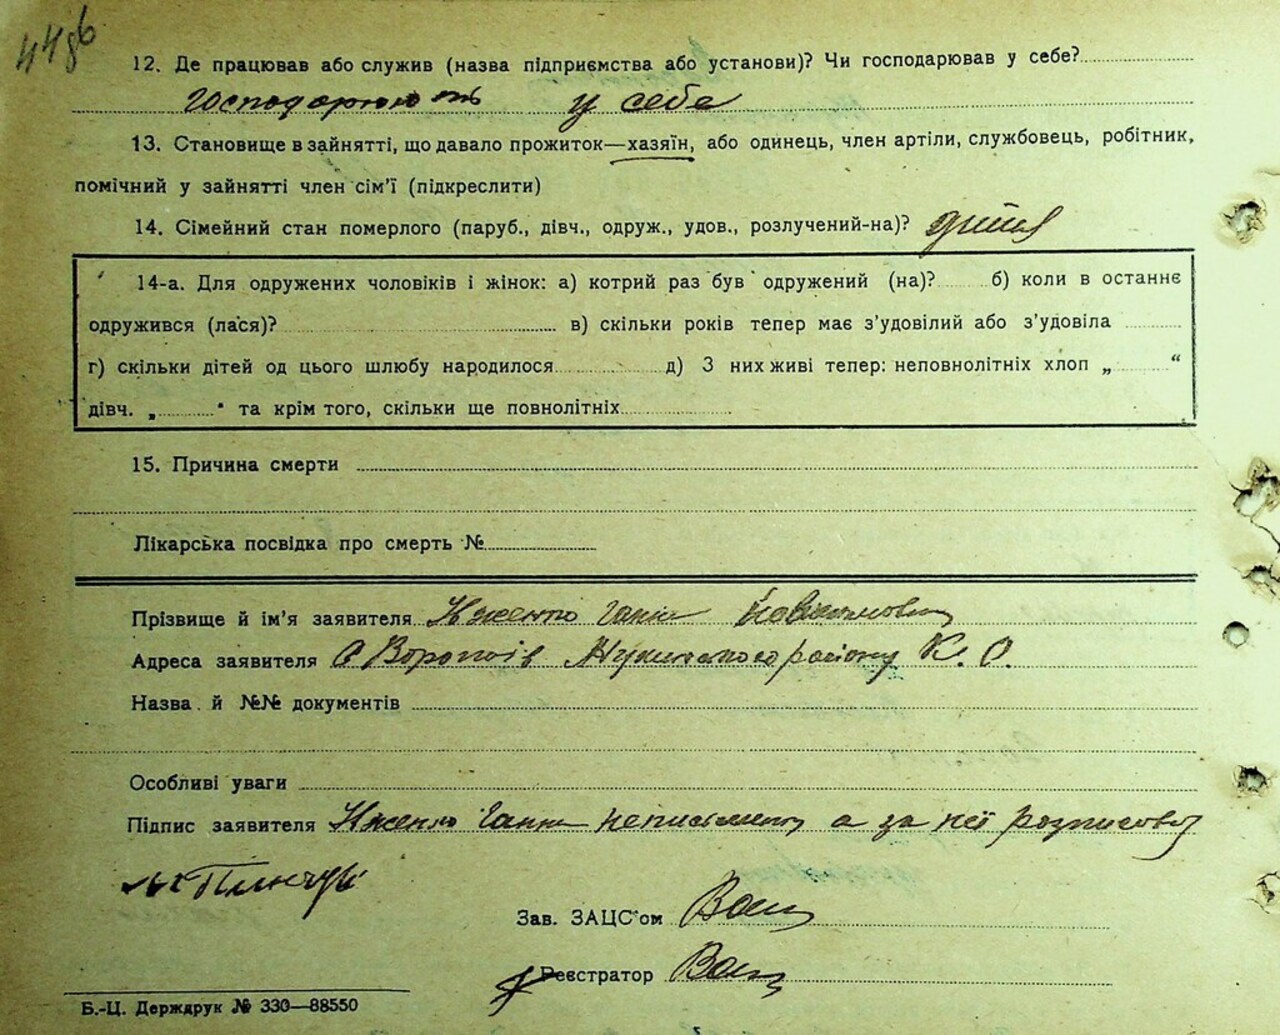 12. Де працював або служив (назва підприємства або установи)? Чи господарював у себе?
господарюють у себе
13. Становище в зайнятті, що давало прожиток—хазяїн, або одинець, член артіли, службовець, робітник,
помічний у зайнятті член сім’ї (підкреслити)
14. Сімейний стан померлого (паруб., дівч., одруж., удов., розлучений-на)?
14-а. Для одружених чоловіків і жінок: а) котрий раз був одружений (на)? б) коли в останнє
одружився (лася)? в) скільки років тепер має з’удовілий або з’удовіла
г) скільки дітей од цього шлюбу народилося д) З них живі тепер: неповнолітніх хлоп „ “
дівч. „ “ та крім того, скільки ще повнолітніх
15. Причина смерти
Лікарська посвідка про смерть №
Прізвище й ім’я заявителя Ганна
Адреса заявителя с району К. О.
Назва й №№ документів
Особливі уваги
Підпис заявителя Ганна неписьменна а за неї
Зав. ЗАЦС’ом
Реєстратор
Б.-Ц. Держдрук № 330—88550